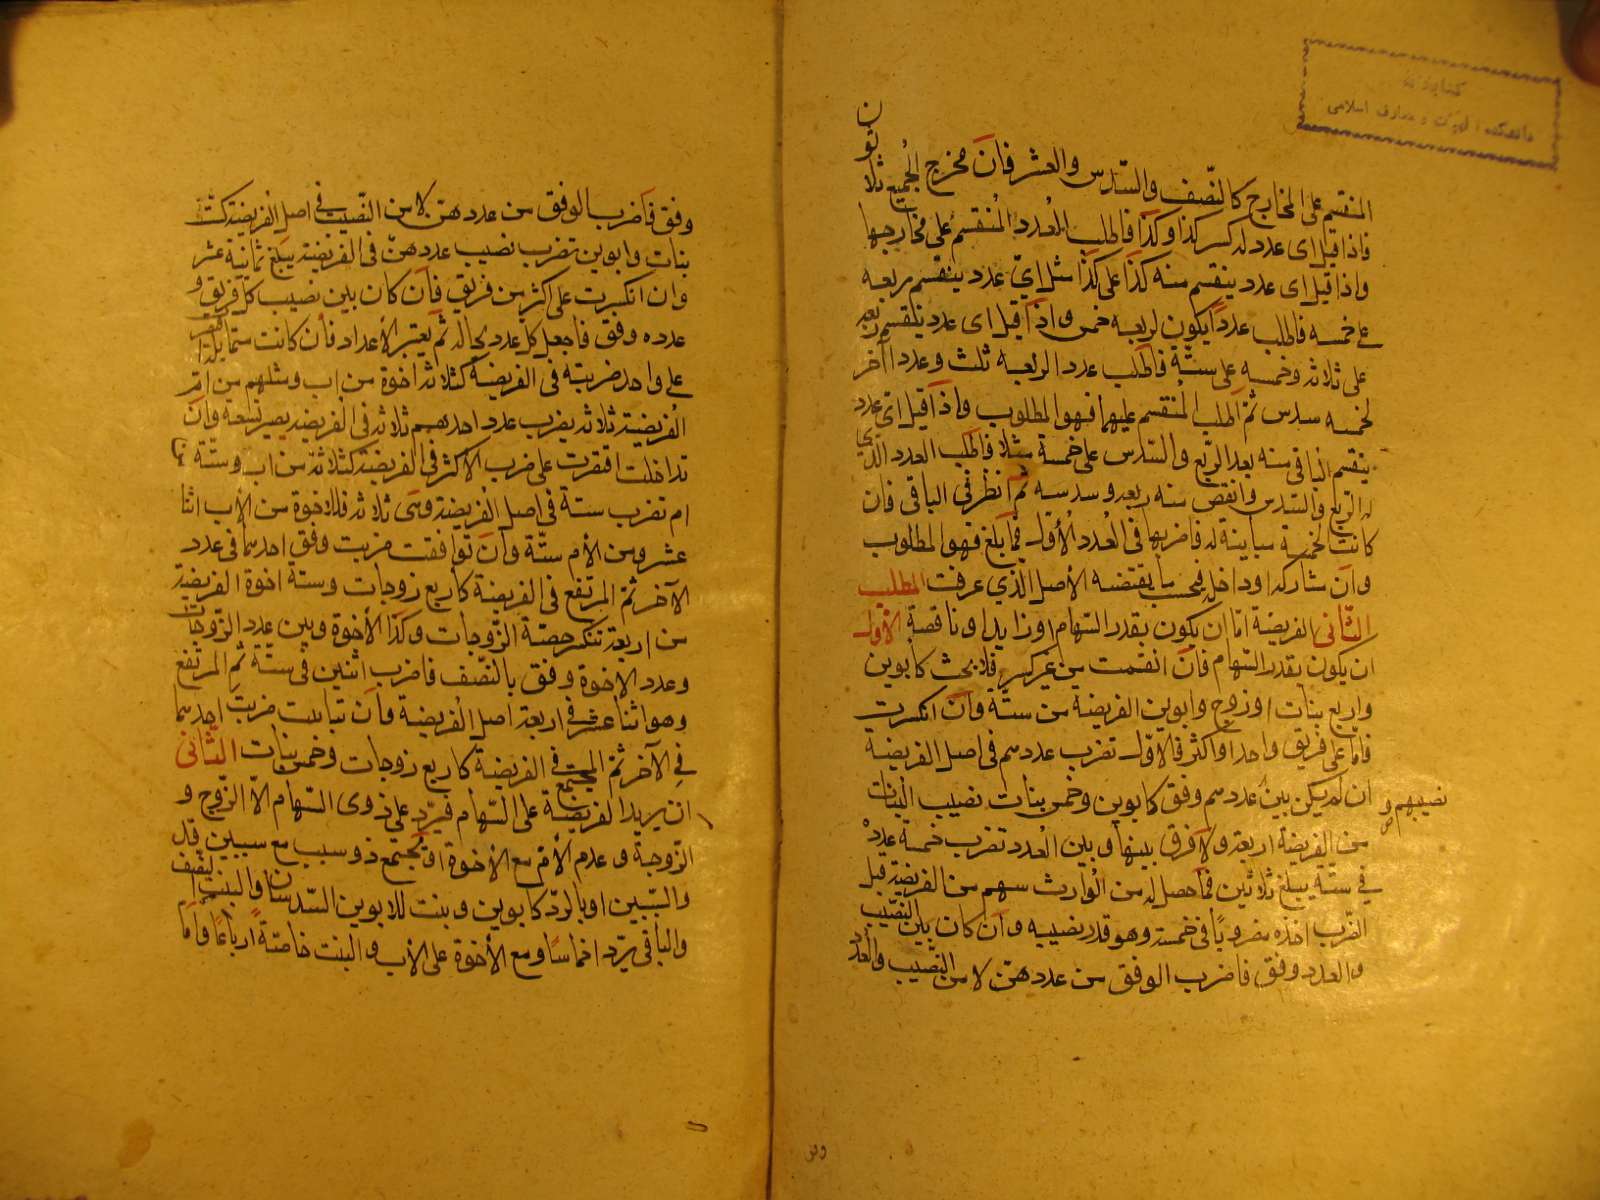 كتابخانه
دانشكده الهيات و معارف اسلامى
المنقسم على المخارج كالنّصف والسّدس والعشر فانّ مخرج الجميع ثلاثون
فاذا قيل اى عدد له كسر كذا وكذا فاطلب العدد المنقسم على مخارجها
واذا قيل اى عدد ينقسم منه كذا على كذا مثل اىّ عدد ينقسم ربعه
على خمسه فاطلب عدداً يكون لربعه خمس واذا قيل اى عدد ينقسم ربعه
على ثلاثة وخمسه على ستّة فاطلب عدد الربعه ثلث وعدداً آخر
لخمسه سدس ثمّ اطلب المنقسم عليهما فهو المطلوب واذا قيل اىّ عدد
ينقسم الباقى منه بعد الرّبع والسّدس على خمسة مثلا فاطلب العدد الذي
له الربع والسّدس وانقص منه ربعه وسدسه ثم انظر فى الباقى فان
كانت الخمسة مباينة له فاضربها فى العدد الأوّل فما بلغ فهو المطلوب
وان شاركه او داخله فبحسب ما يقتضيه الأصل الذي عرفت المطلب
الثّانى الفريضة امّا ان يكون بقدر السّهام او زايدا وناقصة الأوّل
ان يكون بقدر السّهام فان انقسمت من غير كسر فلا بحث كابوين
واربع بنات او زوج وابوين الفريضة من ستّة وان انكسرت
فاما على فريق واحد او اكثر فالاوّل تضرب عددهم فى اصل الفريضة
ان لم يكن بين عددهم وفق كابوين وخمس بنات نصيب البنات
نصيبهم و
من الفريضة اربعة ولا وفق بينها وبين العدد تضرب خمسة عدد
فى ستّة يبلغ ثلاثين فما حصل له من الوارث سهم من الفريضة قبل
الضّرب اخذه مضروبًا فى خمسة وهو قدر نصيبه وان كان بين النصيب
والعدد وفق فاضرب الوفق من عددهنّ لا من النّصيب والعدد
وفق
وفق فاضرب الوفق من عددهنّ لا من النّصيب فى اصل الفريضة كستّ
بنات وابوين تضرب نصيب عددهنّ فى الفريضة يبلغ ثمانية عشر
وان انكسرت على اكثر من فريق فان كان بين نصيب كلّ فريق و
عدده وفق فاجعل كل عدد بحاله ثمّ يعتبر الأعداد فان كانت متماثلة اقتصر
على واحد ضربته فى الفريضة كثلاثة اخوة من اب ومثلهم من امّ
الفريضة ثلاثة يضرب عدد احدهم ثلاثة فى الفريضة يصير تسعة وان
تداخلت اقتصرت على ضرب الأكثر فى الفريضة كثلاثة من اب وستّة من
ام تضرب ستة فى اصل الفريضة وهى ثلاثة فللاخوة من الأب اثنا
عشر ومن الأم ستّة وان توافقت ضربت وفق احدهما فى عدد
الآخر ثمّ المرتفع فى الفريضة كاربع زوجات وستة اخوة الفريضة
من اربعة تنكسر حصّة الزّوجات وكذا الأخوة وبين عدد الزّوجات
وعدد الاخوة وفق بالنّصف فاضرب اثنين فى ستّة ثم المرتفع
وهو اثنا عشر فى اربعة اصل الفريضة وان تباينت ضربت احدهما
فى الآخر ثمّ المجتمع فى الفريضة كاربع زوجات وخمس بنات الثّانى
ان يزيد الفريضة على السّهام فيردّ على ذوى السّهام الا الزّوج و
الزّوجة وعدم الأمّ مع الأخوة او يجتمع ذو سبب مع سببين
والسّببين او بالردّ كابوين وبنت للابوين السّدسان والبنت النّصف
والباقى يردّ اخماسًا ومع الأخوة على الأب والبنت خاصّة ارباعًا وامّا